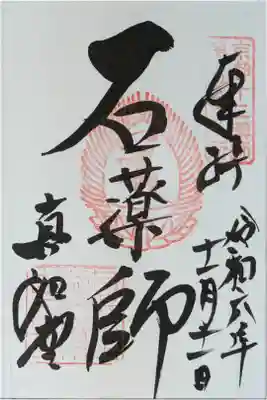 奉拝
令和六年
十一月十一日
石薬師
真如堂